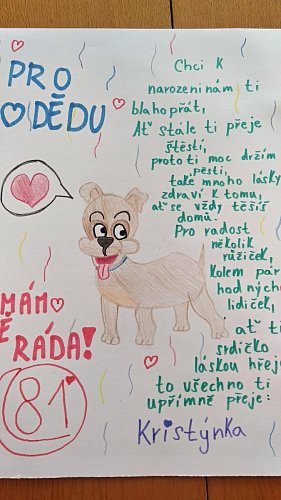 PRO
DĚDU
MÁM
Ě
RÁDA!
81
Chci k
narozeninám ti
blahopřát,
Ať stále ti přeje
štěstí,
proto ti moc držím
pěsti,
také mnoho lásky
zdraví k tomu,
ať se vždy těšíš
domů.
Pro radost
několik
růžiček,
kolem pár
hodných
lidiček,
ať ti
srdíčko
láskou hřeje
to všechno ti
upřímně přeje:
Kristýnka